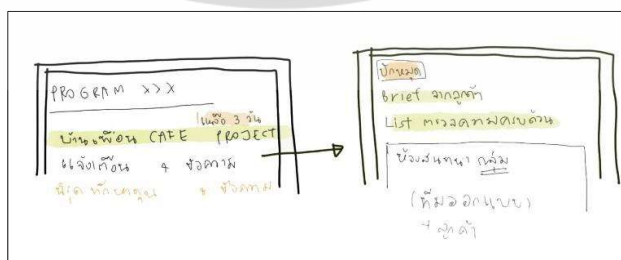 PROGRAM >>>
เหลือ 3 วัน
บ้านเพื่อน CAFE PROJECT
แจ้งเตือน 4 ข้อความ
ข้อความ
ปักหมุด
Brief จากลูกค้า
List ตรวจความครบถ้วน
ห้องสนทนา กลุ่ม
(ทีมออกแบบ)
+ ลูกค้า